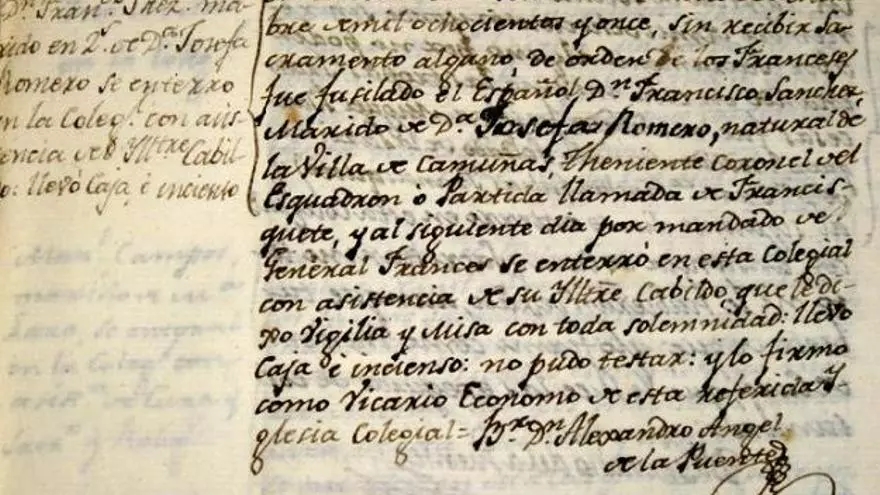 Dn. Franco. Saez. ma-
rido en 2s. de Da. Josefa
Romero se enterro
en la Colegl. con asis
tencia de su Ylltre. Cabil
o: llevó Caja, é incienso
bre de mil ochocientos y once, sin recibir Sa-
cramento alguno, de orden de los Franceses
fue fusilado el Español, Dn. Francisco Sanchez,
Marido de Da. Josefa Romero, natural de
la Villa de Camuñas, Theniente Coronel del
Esquadron ò Partida llamada de Francis-
quete, y al siguiente dia por mandado de
General Frances se enterró en esta Colegial
con asistencia de su Ylltre. Cabildo, que le di-
xo Vigilia y Misa con toda solemnidad: llevo
Caja é incienso: no pudo testar: y lo firmo
como Vicario Economo de esta referida Y-
glesia Colegial = Br. Dn. Alexandro Angel
de la Puente